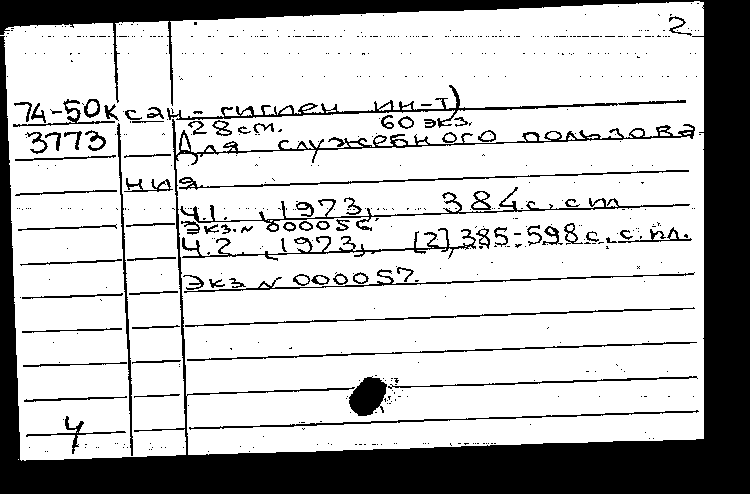 2
74-50к сан.-гигиен ин-т)
28см. 60 экз.
3773 Для служебного пользова-
ния.
Ч.1. [1973]. 384с. с ил
Экз. № 000056
Ч.2. [1973]. [2], 385-598с. с. ил.
Экз № 000057.
4